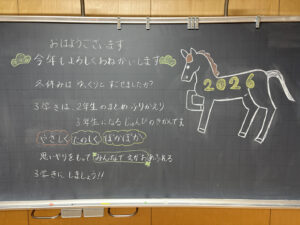 おはようございます
今年もよろしくおねがいします
冬休みは ゆっくりと すごせましたか？
3学きは、2年生のまとめ・ふりかえり
3年生になるじゅんびのきかんです
やさしく たのしく ぽかぽか
思いやりをもって みんなで えがお あふれる
3学きに しましょう!!
2026